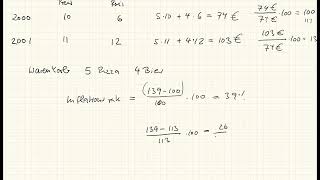 2000 10 6 5·10 + 4·6 = 74€ 74€/74€ ·100 = 100
2001 11 12 5·11 + 4·12 = 103€ 103€/74€ ·100 = 13
Warenkorb 5 Pizza 4 Bier
Inflationsrate = (139-100)/100 · 100 = 39%
139-113/113 ·100 = 26